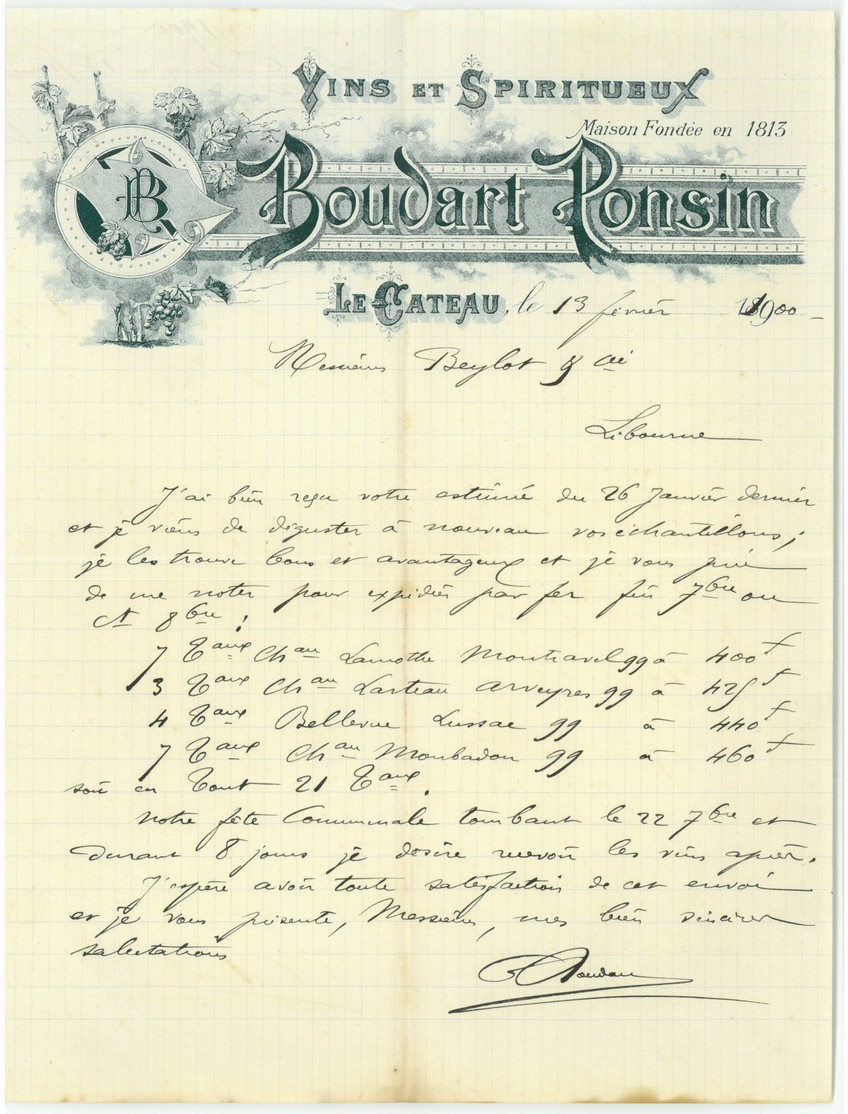 VINS ET SPIRITUEUX
Maison Fondée en 1813
BP
Boudart Ponsin
LE CATEAU, le 13 février 1900
Messieurs Beylot & Cie
Libourne
J'ai bien reçu votre estimée du 26 Janvier dernier
et je viens de déguster à nouveau vos échantillons ;
je les trouve bons et avantageux et je vous prie
de me noter pour expédier par fer fin 7bre ou
Ct 8bre :
7 Teaux Chau Lamothe Montravel 99 à 400 f
3 Teaux Chau Larteau Arveyres 99 à 425 f
4 Teaux Bellevue Lussac 99 à 440 f
7 Teaux Chau Monbadon 99 à 460 f
soit en Tout 21 Teaux.
Notre fête Communale tombant le 22 7bre et
durant 8 jours je désire recevoir les vins après.
J'espère avoir toute satisfaction de cet envoi
et je vous présente, Messieurs, mes bien sincères
salutations